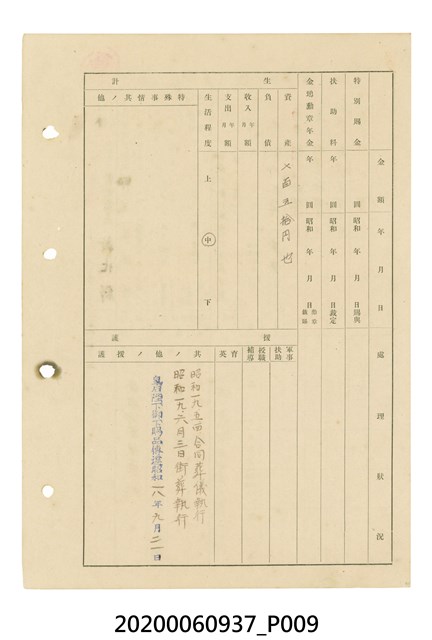 金額 年月日 處理狀況
特別賜金 圓 昭和 年 月 日 賜與
扶助料 年 圓 昭和 年 月 日 裁定
金鵄勳章年金 年 圓 昭和 年 月 日
生計
資產 七百五拾円也
負債
收入 年 月 額
支出 年 月 額
生活程度 上 中 下
特殊事情其ノ他
援護
軍事扶助
授職補導
育英
其ノ他ノ援護
昭和一九、五、 合同葬儀執行
昭和一九、六月三日御葬執行
皇后陛下御下賜品傳達昭和一八年九月二一日
20200060937_P009